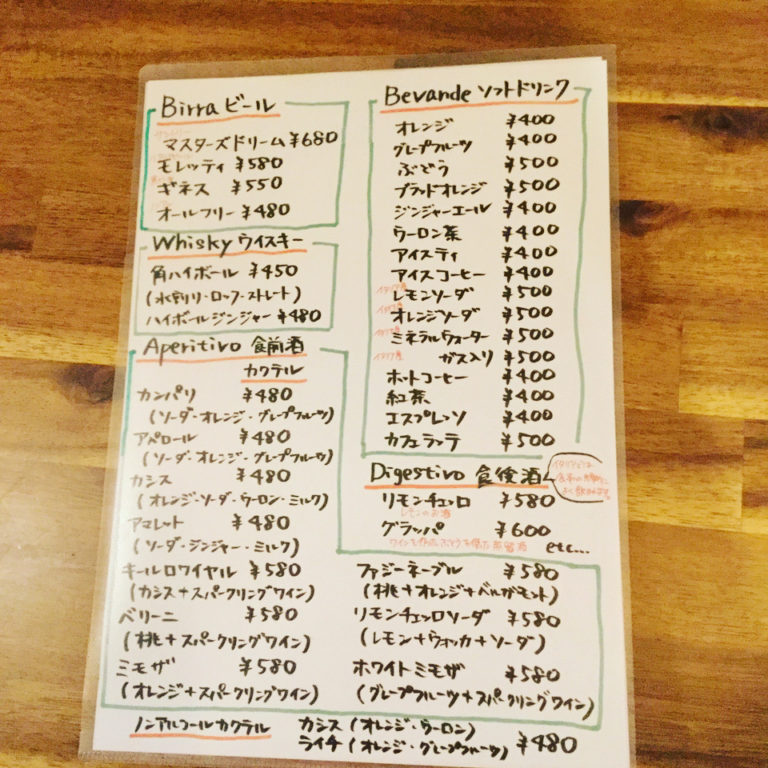 Birra ビール
マスターズドリーム ¥680
モレッティ ¥580
ギネス ¥550
オールフリー ¥480
Whisky ウイスキー
角ハイボール ¥450
(水割り・ロック・ストレート)
ハイボールジンジャー ¥480
Aperitivo 食前酒
カクテル
カンパリ ¥480
(ソーダ・オレンジ・グレープフルーツ)
アペロール ¥480
(ソーダ・オレンジ・グレープフルーツ)
カシス ¥480
(オレンジ・ソーダ・ウーロン・ミルク)
アマレット ¥480
(ソーダ・ジンジャー・ミルク)
キールロワイヤル ¥580
(カシス+スパークリングワイン)
ベリーニ ¥580
(桃+スパークリングワイン)
ミモザ ¥580
(オレンジ+スパークリングワイン)
Bevande ソフトドリンク
オレンジ ¥400
グレープフルーツ ¥400
ぶどう ¥500
ブラッドオレンジ ¥500
ジンジャーエール ¥400
ウーロン茶 ¥400
アイスティ ¥400
アイスコーヒー ¥400
イタリア産
レモンソーダ ¥500
イタリア産
オレンジソーダ ¥500
イタリア産
ミネラルウォーター ¥500
イタリア産
ガス入り ¥500
ホットコーヒー ¥400
紅茶 ¥400
エスプレッソ ¥400
カフェラッテ ¥500
Digestivo 食後酒
イタリアでは
リモンチェッロ ¥580
レモンのお酒
グラッパ ¥600
etc...
ファジーネーブル ¥580
(桃+オレンジ+ベルガモット)
リモンチェッロソーダ ¥580
(レモン+ウォッカ+ソーダ)
ホワイトミモザ ¥580
(グレープフルーツ+スパークリングワイン)
ノンアルコールカクテル カシス(オレンジ・ウーロン)
ライチ(オレンジ・グレープフルーツ) ¥480